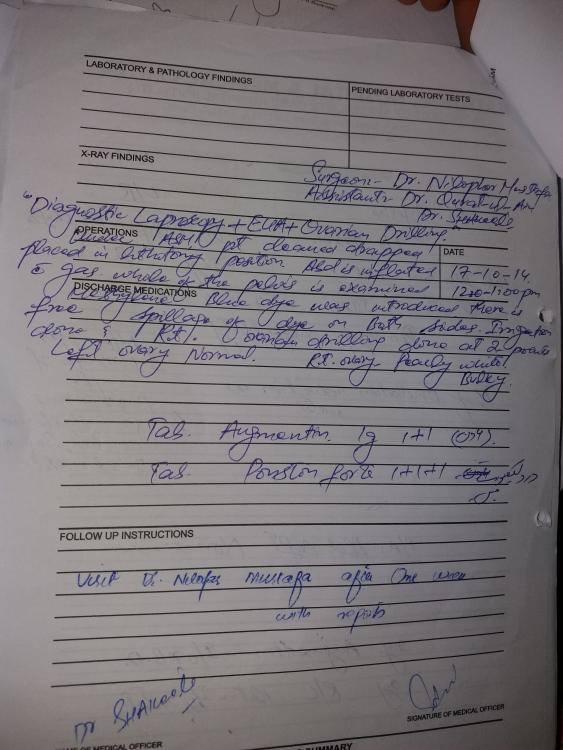 LABORATORY & PATHOLOGY FINDINGS
PENDING LABORATORY TESTS
X-RAY FINDINGS
Surgeon - Dr. Mustafa
Assistant - Dr. Qurat-ul-Ain
Dr. Shakeela
"Diagnostic Laproscopy + EUA + Ovarian Drilling."
OPERATIONS
Under pt cleaned draped
DATE
placed in lithotomy position Abd is inflated
17-10-14.
c̄ gas. whole of the pelvis is examined
1:00pm
DISCHARGE MEDICATIONS
Methylene Blue dye was introduced there is
free spillage of dye on Both sides. Irrigation
done c̄ R.L. ovarian drilling done at 2 points
Left ovary Normal. Rt. ovary Pearly white.
Bulky.
Tab. Augmentin 1g 1+1
Tab. Ponston forte 1+1+1
FOLLOW UP INSTRUCTIONS
Visit Dr. Mustafa after One week
with reports
Dr SHAKEELA
SIGNATURE OF MEDICAL OFFICER
NAME OF MEDICAL OFFICER
SUMMARY